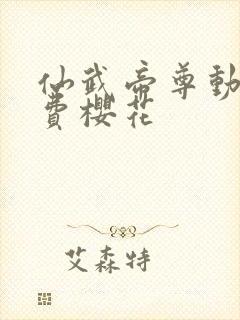 仙武帝尊動
費櫻花
艾森特